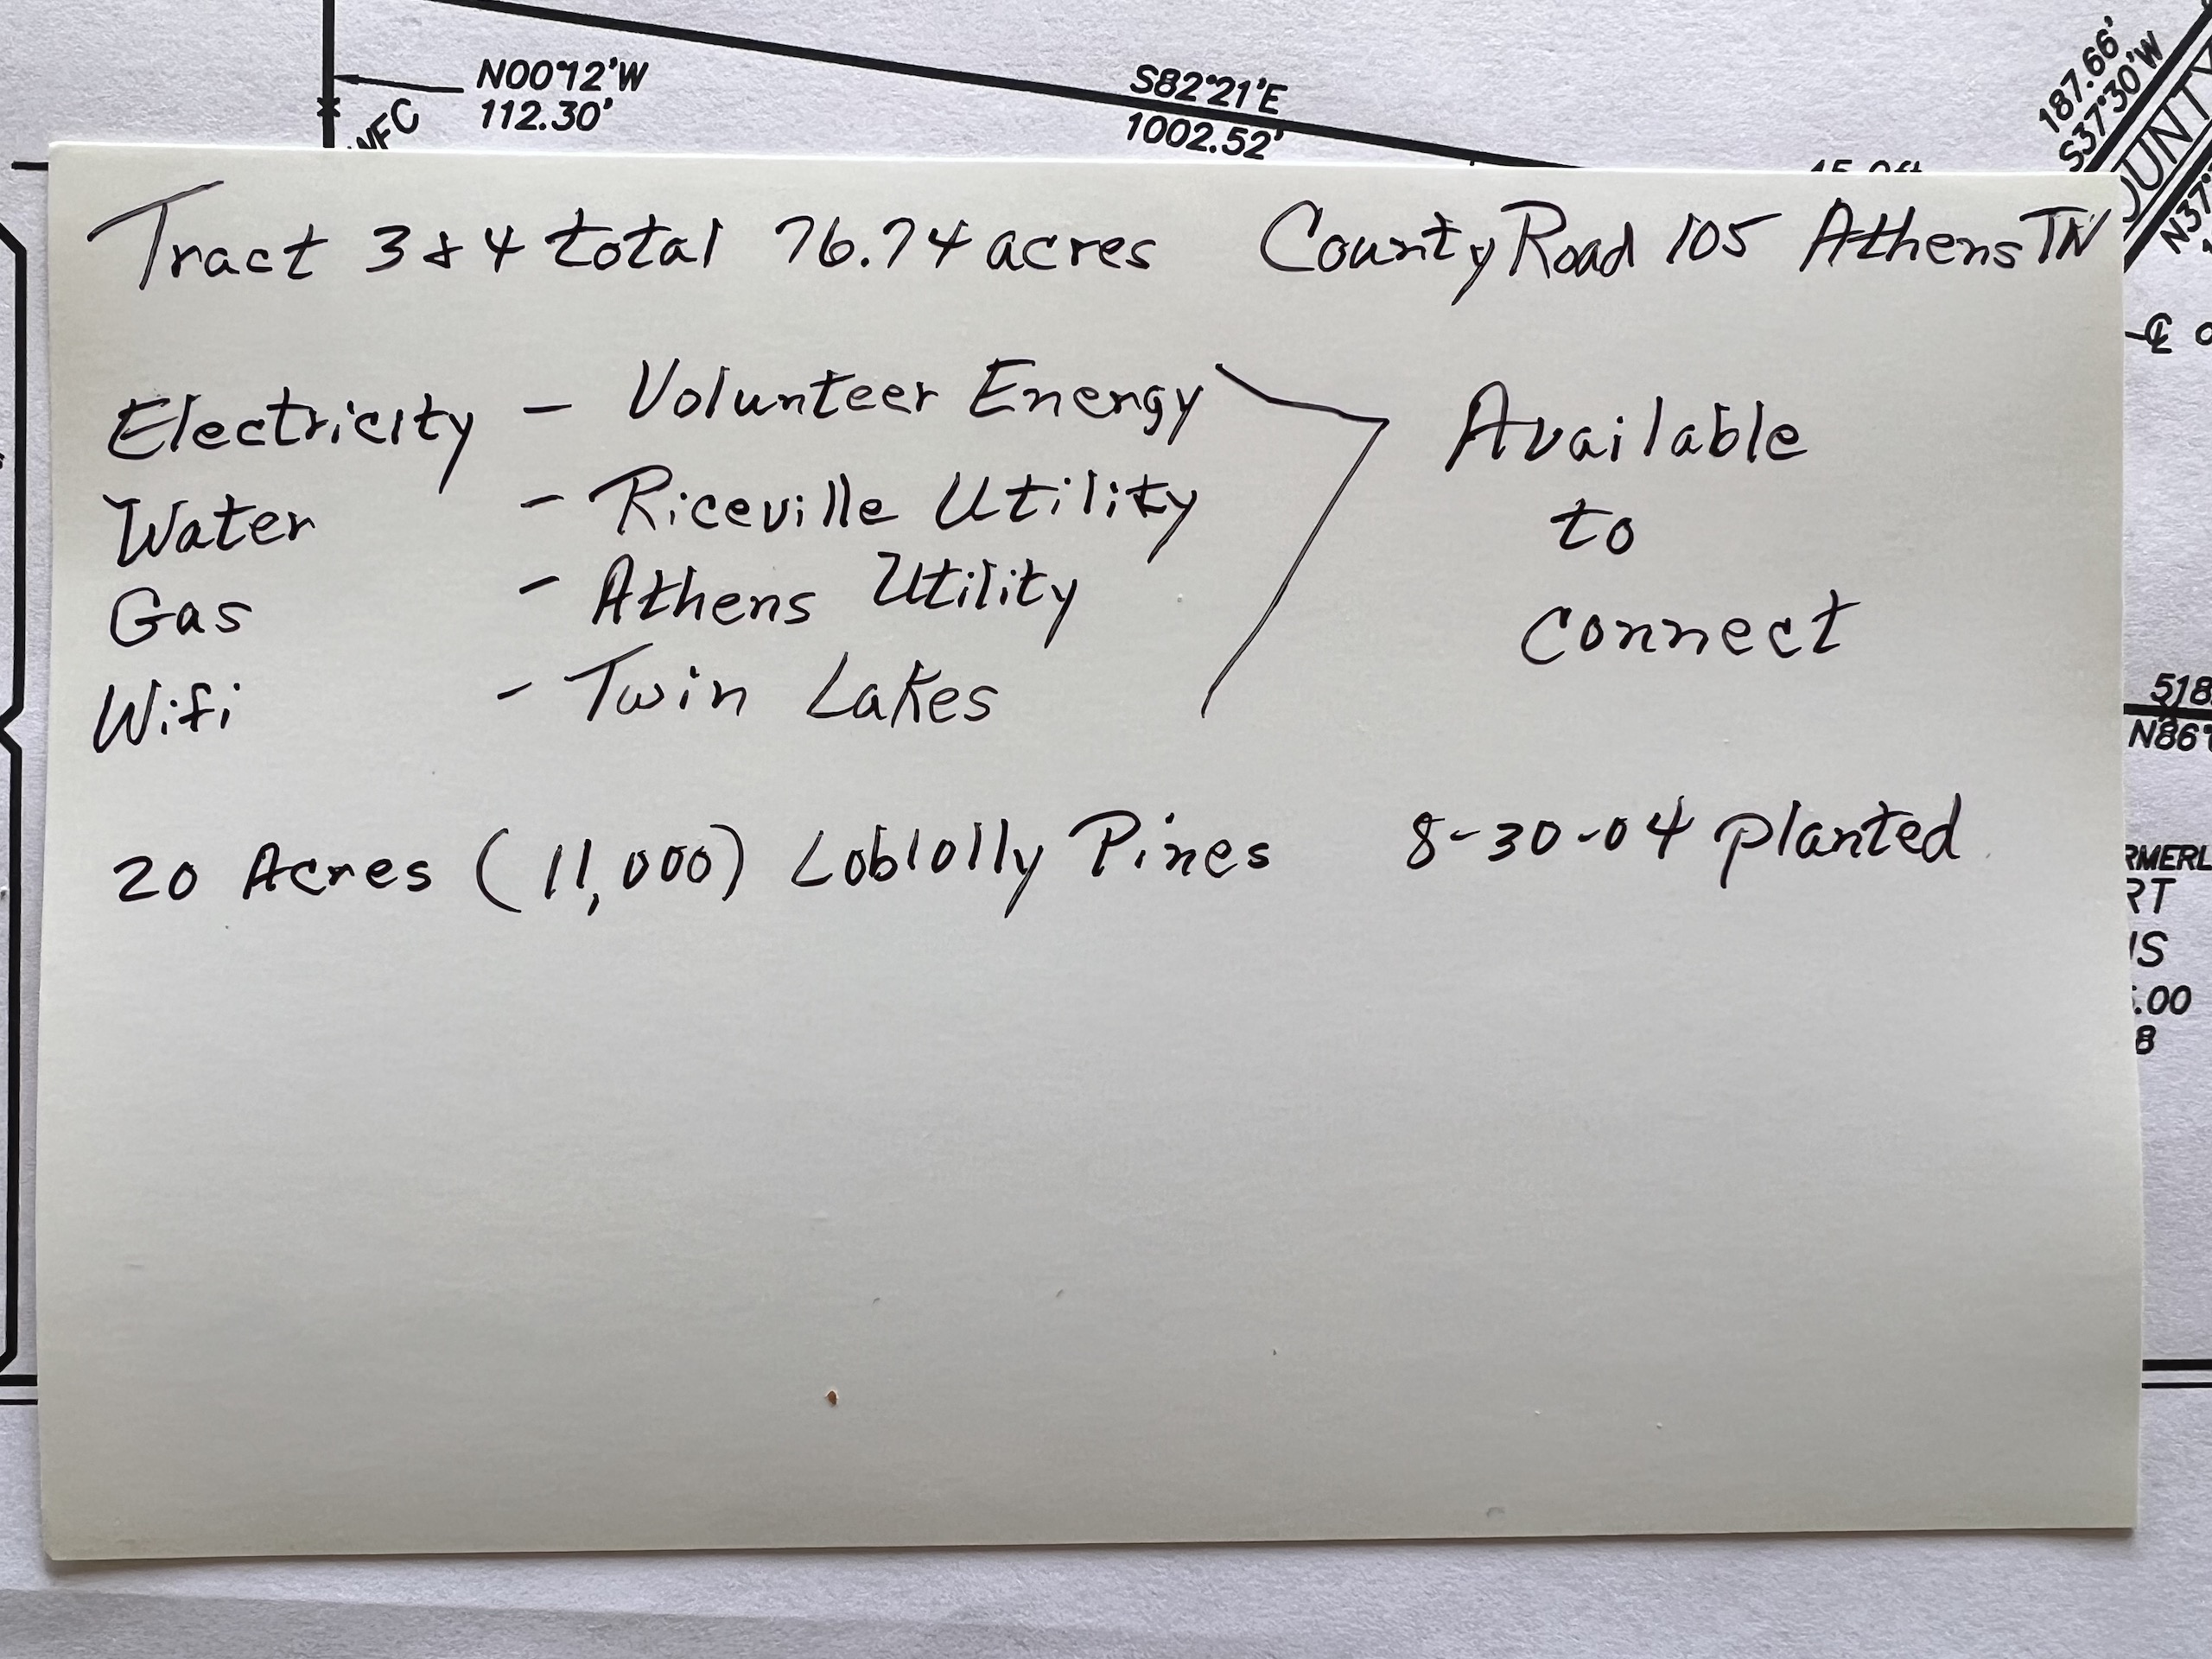 N00°12'W
112.30'
WFC
S82°21'E
1002.52'
187.66'
S37°30'W
Tract 3 & 4 total 76.74 acres County Road 105 Athens TN
Electricity - Volunteer Energy
Water - Riceville Utility
Gas - Athens Utility
Wifi - Twin Lakes
Available
to
connect
20 Acres (11,000) Loblolly Pines 8-30-04 planted